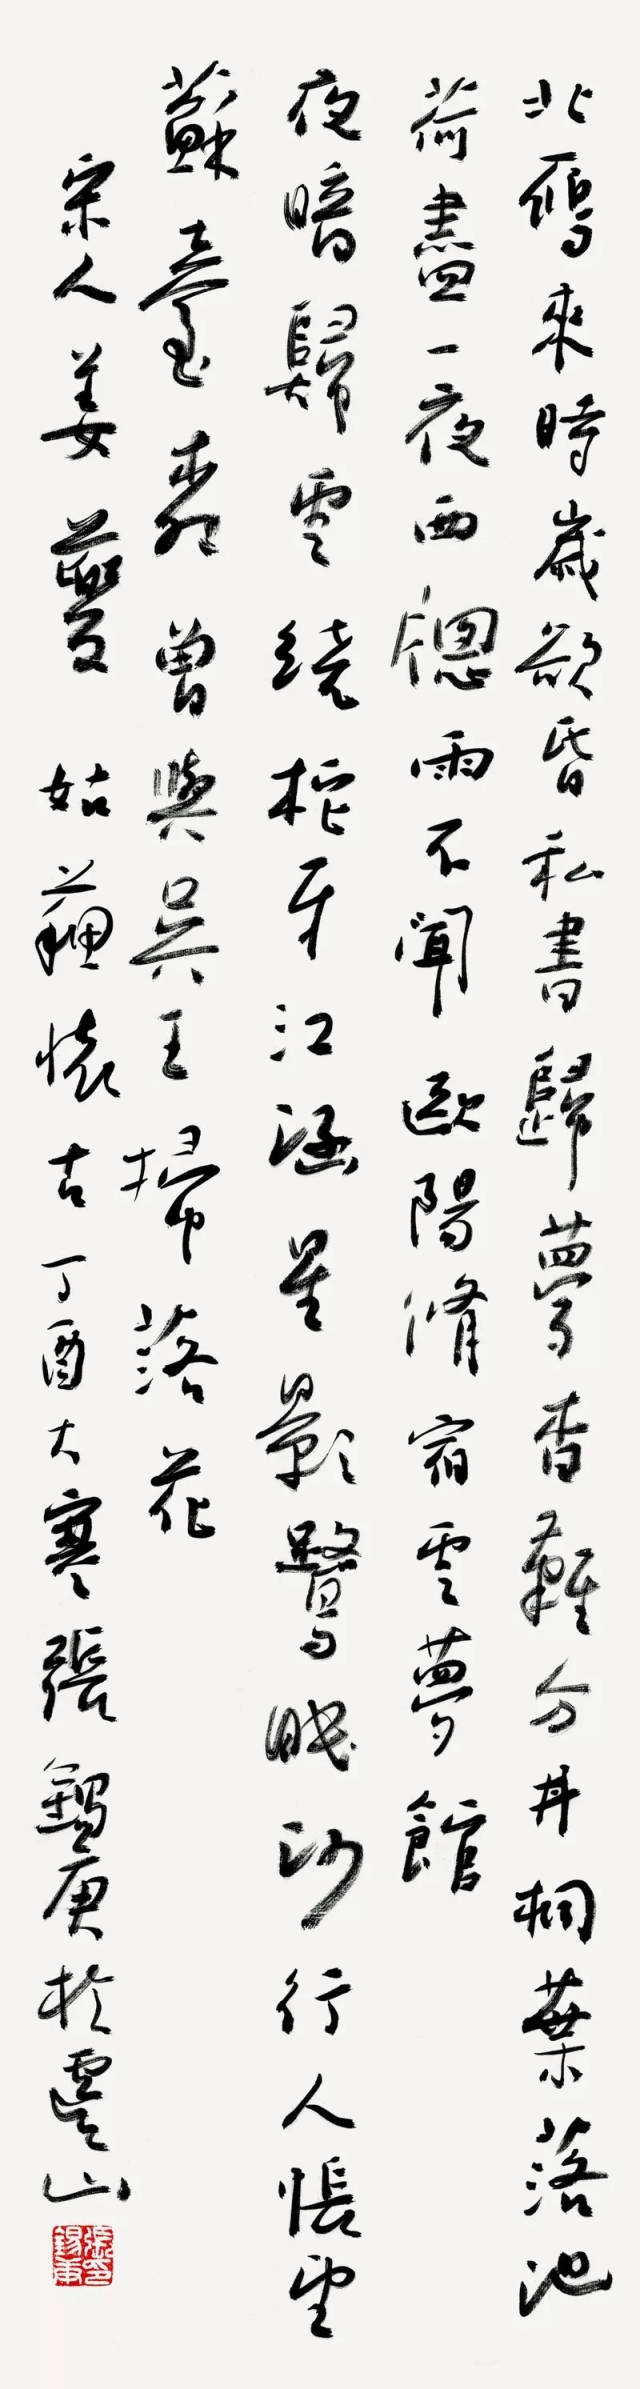 北鴈來時歲欲昏私書歸夢杳難分井桐葉落池
荷盡一夜西牕雨不聞歐陽脩宿雲夢館
夜暗歸雲繞柁牙江涵星影鷺眠沙行人悵望
蘇臺柳曾與吳王掃落花
宋人姜夔姑蘓懷古丁酉大寒張錫庚於虞山
張印錫庚